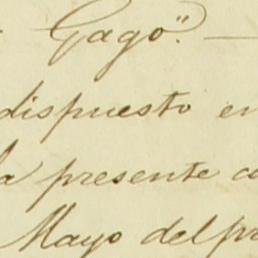 Gago". —
dispuesto en
la presente
Mayo del